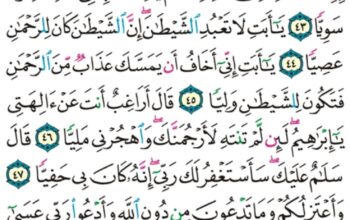 سَوِيًّا ٤٣ يَٰٓأَبَتِ لَا تَعْبُدِ ٱلشَّيْطَٰنَ إِنَّ ٱلشَّيْطَٰنَ كَانَ لِلرَّحْمَٰنِ
عَصِيًّا ٤٤ يَٰٓأَبَتِ إِنِّىٓ أَخَافُ أَن يَمَسَّكَ عَذَابٌ مِّنَ ٱلرَّحْمَٰنِ
فَتَكُونَ لِلشَّيْطَٰنِ وَلِيًّا ٤٥ قَالَ أَرَاغِبٌ أَنتَ عَنْ ءَالِهَتِى
يَٰٓإِبْرَٰهِيمُ لَئِن لَّمْ تَنتَهِ لَأَرْجُمَنَّكَ وَٱهْجُرْنِى مَلِيًّا ٤٦ قَالَ
سَلَٰمٌ عَلَيْكَ سَأَسْتَغْفِرُ لَكَ رَبِّىٓ إِنَّهُۥ كَانَ بِى حَفِيًّا ٤٧
وَأَعْتَزِلُكُمْ وَمَا تَدْعُونَ مِن دُونِ ٱللَّهِ وَأَدْعُوا۟ رَبِّى عَسَىٰٓ